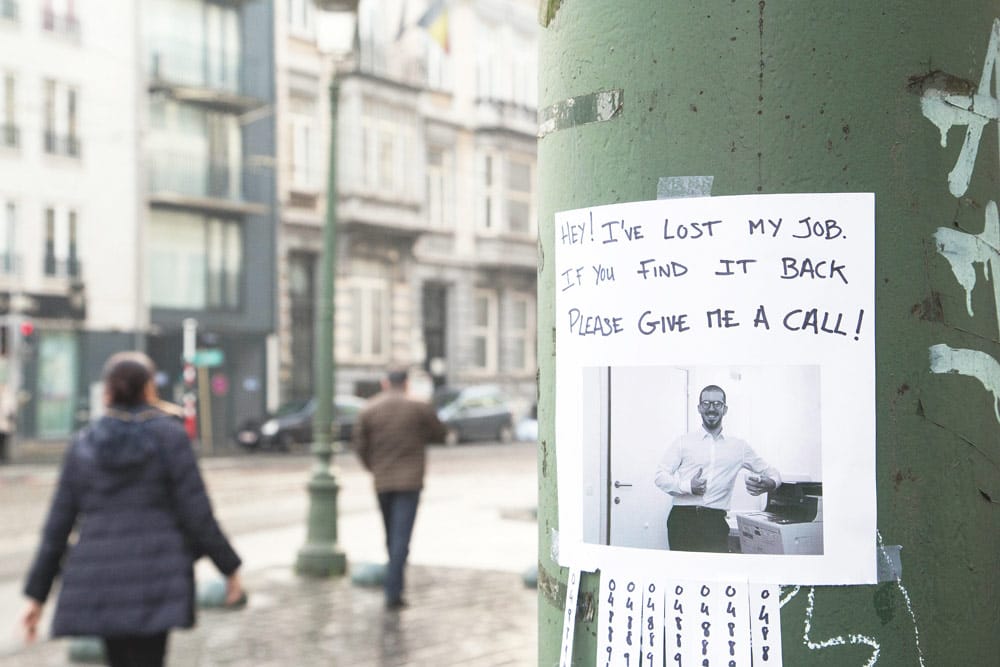 HEY! I'VE LOST MY JOB.
IF YOU FIND IT BACK
PLEASE GIVE ME A CALL!
0489
04889
04889
04889
04889
04889
0488
5